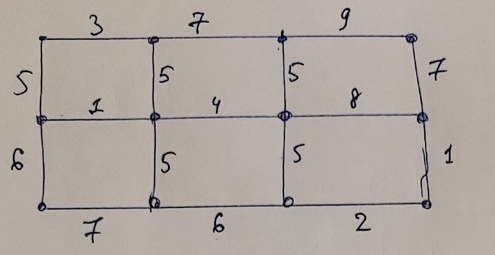 3 7 9
5 5 5 7
1 4 8
6 5 5 1
7 6 2